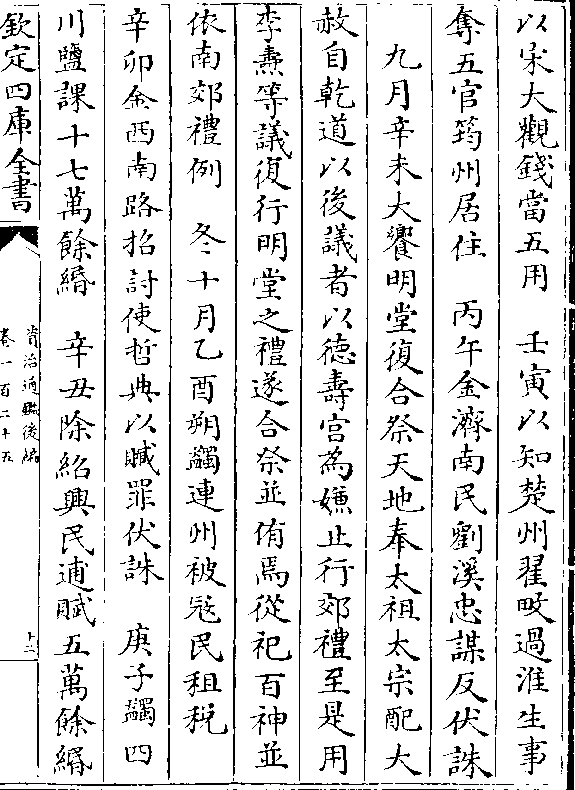 以宋大觀錢當五用　壬寅以知楚州翟畋過淮生事
奪五官筠州居住　丙午金濟南民劉溪忠謀反伏誅
九月辛未大饗明堂復合祭天地奉太祖太宗配大
赦自乾道以後議者以德壽宫為嫌止行郊禮至是用
李燾等議復行明堂之禮遂合祭並侑焉從祀百神並
依南郊禮例　冬十月乙酉朔蠲連州被宼民租税
辛卯金西南路招討使哲典以贓罪伏誅　庚子蠲四
川鹽課十七萬餘緡　辛丑除紹興民逋賦五萬餘緡
欽定四庫全書
資治通鑑後編
卷一百二十五
十二